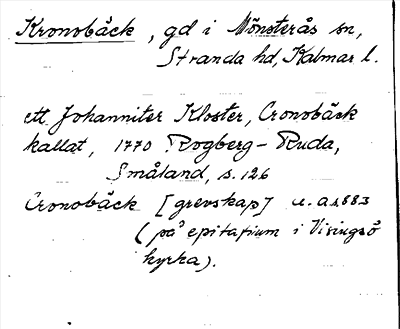 Kronobäck, gd i Mönsterås sn,
Stranda hd, Kalmar l.
ett Johanniter Kloster, Cronobäck
kallat, 1770 Rogberg-Ruda,
Småland, s. 126
Cronobäck [grevskap] u. a 1883
(på epitafium i Visingsö
kyrka).